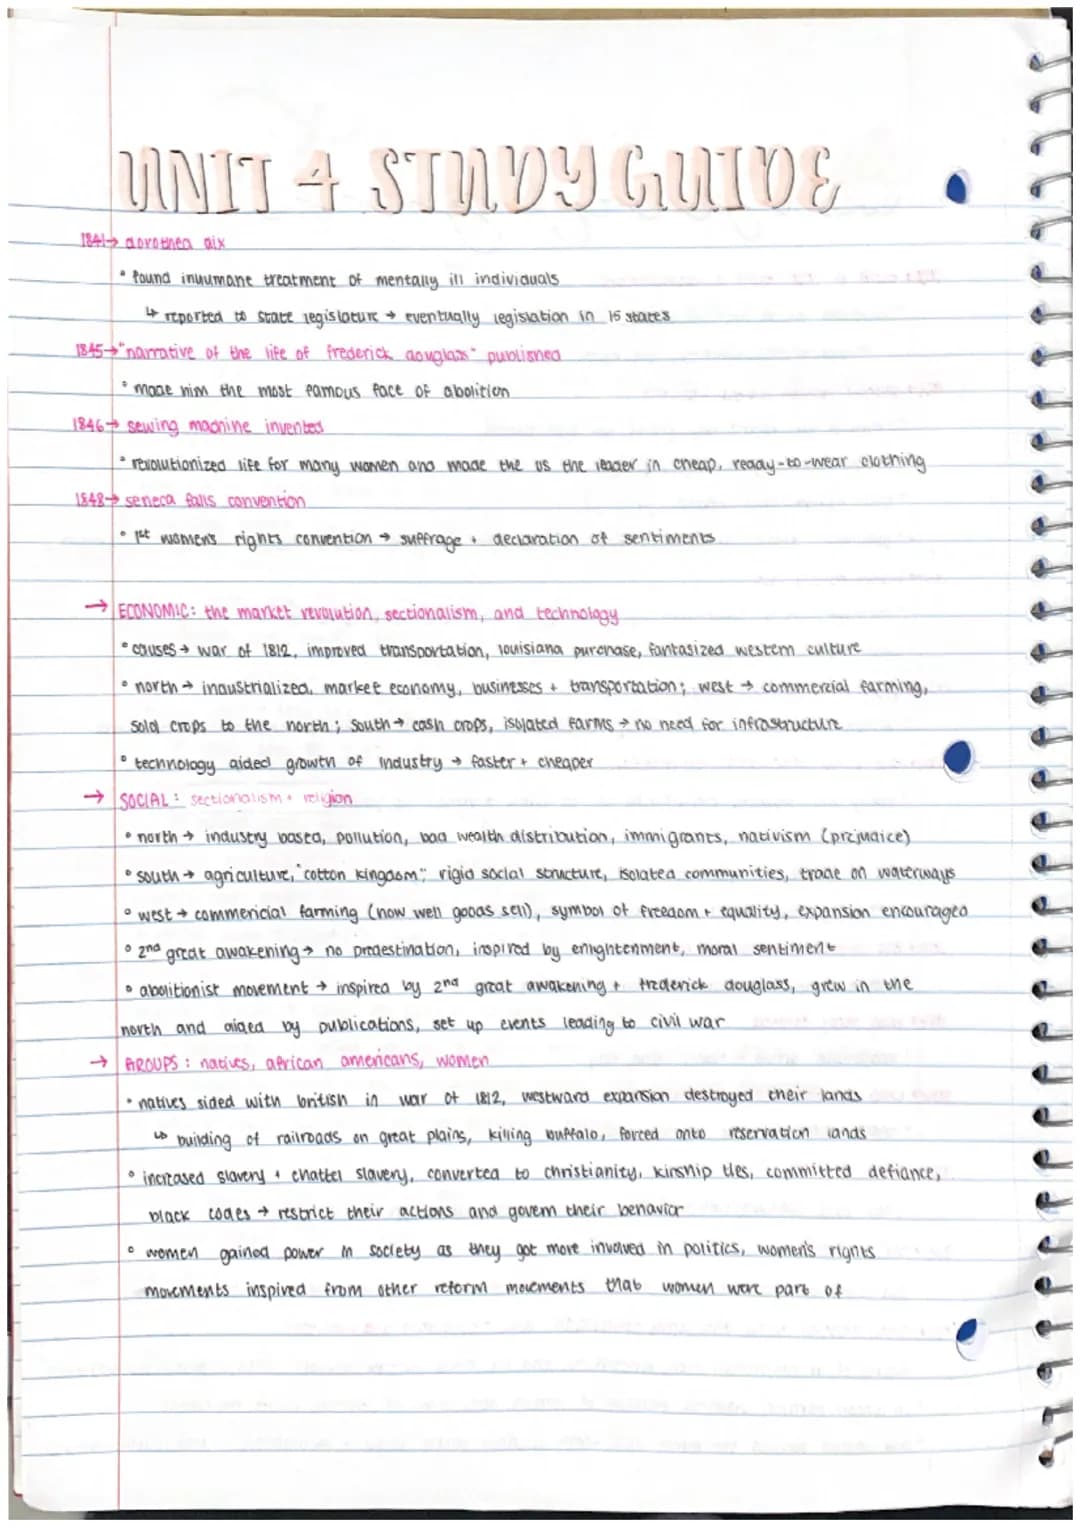 UNIT 4 STUDY GUIDE
1841→ dorothea dix
• found inhumane treatment of mentally ill individuals
↳ reported to state legislature → eventually legislation in 15 states
1845→ "narrative of the life of frederick douglass" published
• made him the most famous face of abolition
1846→ sewing machine invented
• revolutionized life for many women and made the us the leader in cheap, ready-to-wear clothing
1848→ seneca falls convention
• 1st women's rights convention → suffrage + declaration of sentiments
→ ECONOMIC: the market revolution, sectionalism, and technology
• causes → war of 1812, improved transportation, louisiana purchase, fantasized western culture
• north → industrialized, market economy, businesses + transportation; west → commercial farming,
sold crops to the north; south → cash crops, isolated farms → no need for infrastructure
• technology aided growth of industry → faster + cheaper
→ SOCIAL: sectionalism + religion
• north → industry based, pollution, bad wealth distribution, immigrants, nativism (prejudice)
• south → agriculture, "cotton kingdom"; rigid social structure, isolated communities, trade on waterways
• west → commericial farming (now well goods sell), symbol of freedom + equality, expansion encouraged
• 2nd great awakening → no predestination, inspired by enlightenment, moral sentiment
• abolitionist movement → inspired by 2nd great awakening + frederick douglass, grew in the
north and aided by publications, set up events leading to civil war
→ GROUPS: natives, african americans, women
• natives sided with british in war of 1812, westward expansion destroyed their lands
↳ building of railroads on great plains, killing buffalo, forced onto reservation lands
• increased slavery + chattel slavery, converted to christianity, kinship ties, committed defiance,
black codes → restrict their actions and govern their behavior
• women gained power in society as they got more involved in politics, women's rights
movements inspired from other reform movements that women were part of